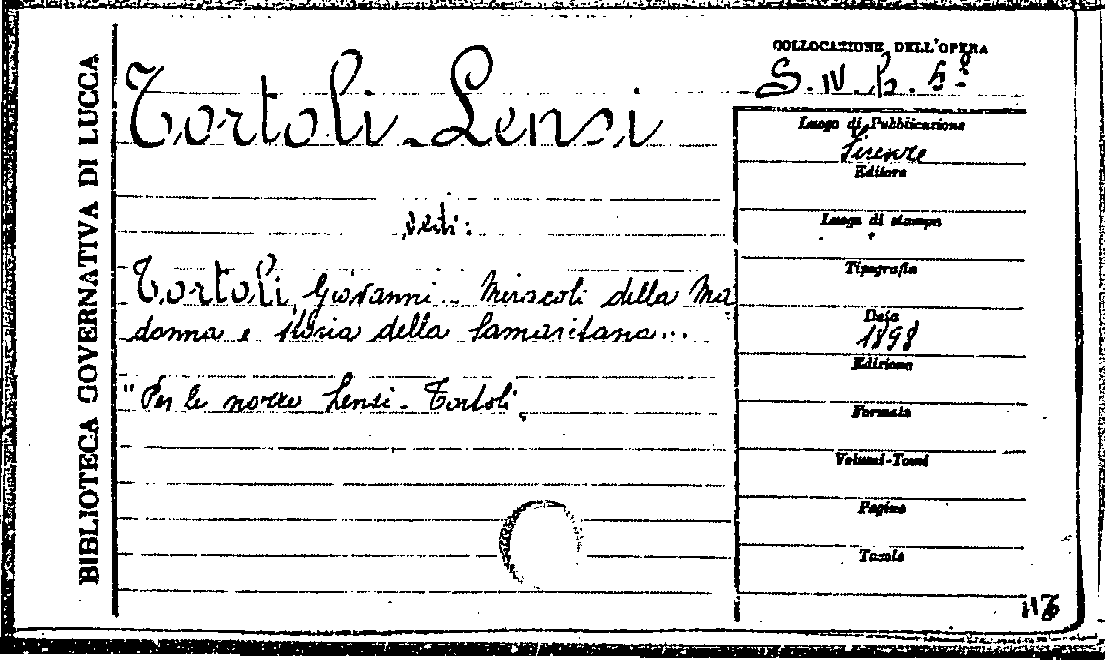 BIBLIOTECA GOVERNATIVA DI LUCCA
COLLOCAZIONE DELL'OPERA
Tortoli-Lensi
Luogo di Pubblicazione
Firenze
Editore
vedi:
Luogo di stampa
Tipografia
Tortoli Giovanni - Miracoli della Ma
donna e storia della Samaritana...
Data
1898
Edizione
"Per le nozze Lensi-Tortoli"
Formato
Volumi-Tomi
Pagine
Tavole